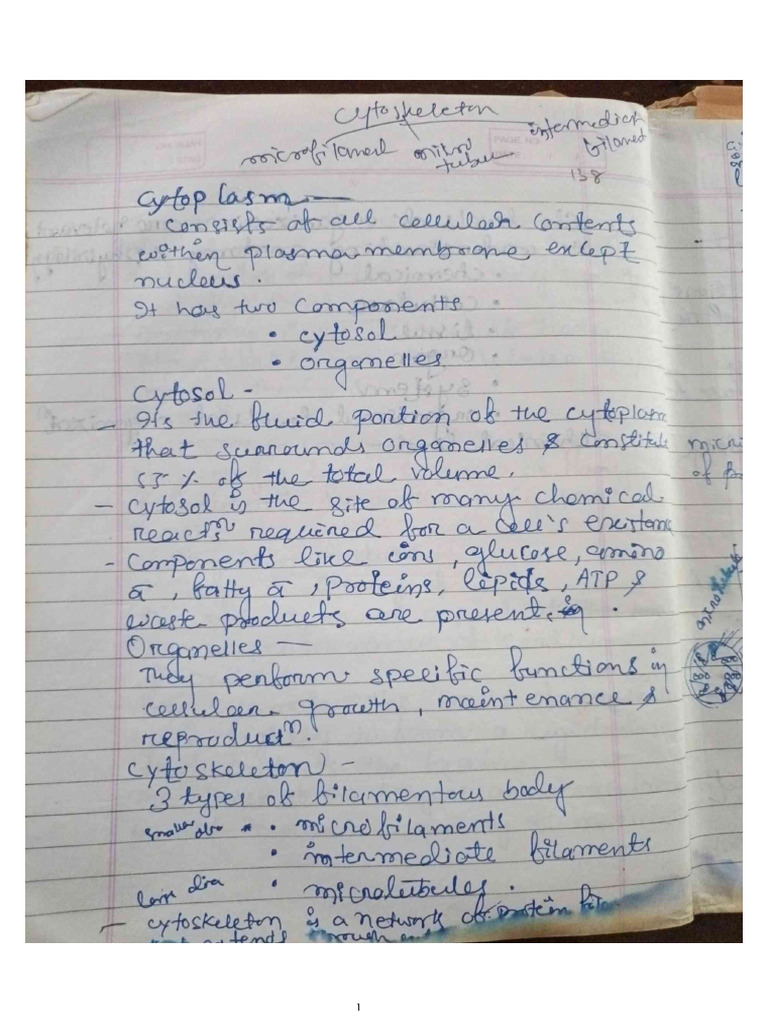 Cytoskeleton
microfilament micro tubu intermediat filamet
138
Cytoplasm —
Consists of all cellular contents
within plasma membrane except
nucleus.
It has two components
• cytosol
• organelles
Cytosol -
- It is the fluid portion of the cytoplasm
that surrounds organelles & constitute
55% of the total volume.
- Cytosol is the site of many chemical
reactⁿ required for a cell's existanc
- Components like ions, glucose, amino
ā, fatty ā, proteins, lipids, ATP &
waste products are present.
Organelles —
They perform specific functions in
cellular growth, maintenance &
reproductⁿ.
Cytoskeleton -
3 types of filamentous body
smaller dia • microfilaments
• intermediate filaments
dia • microtubules.
- cytoskeleton is a network of protein fila
extends through
micr
of
1